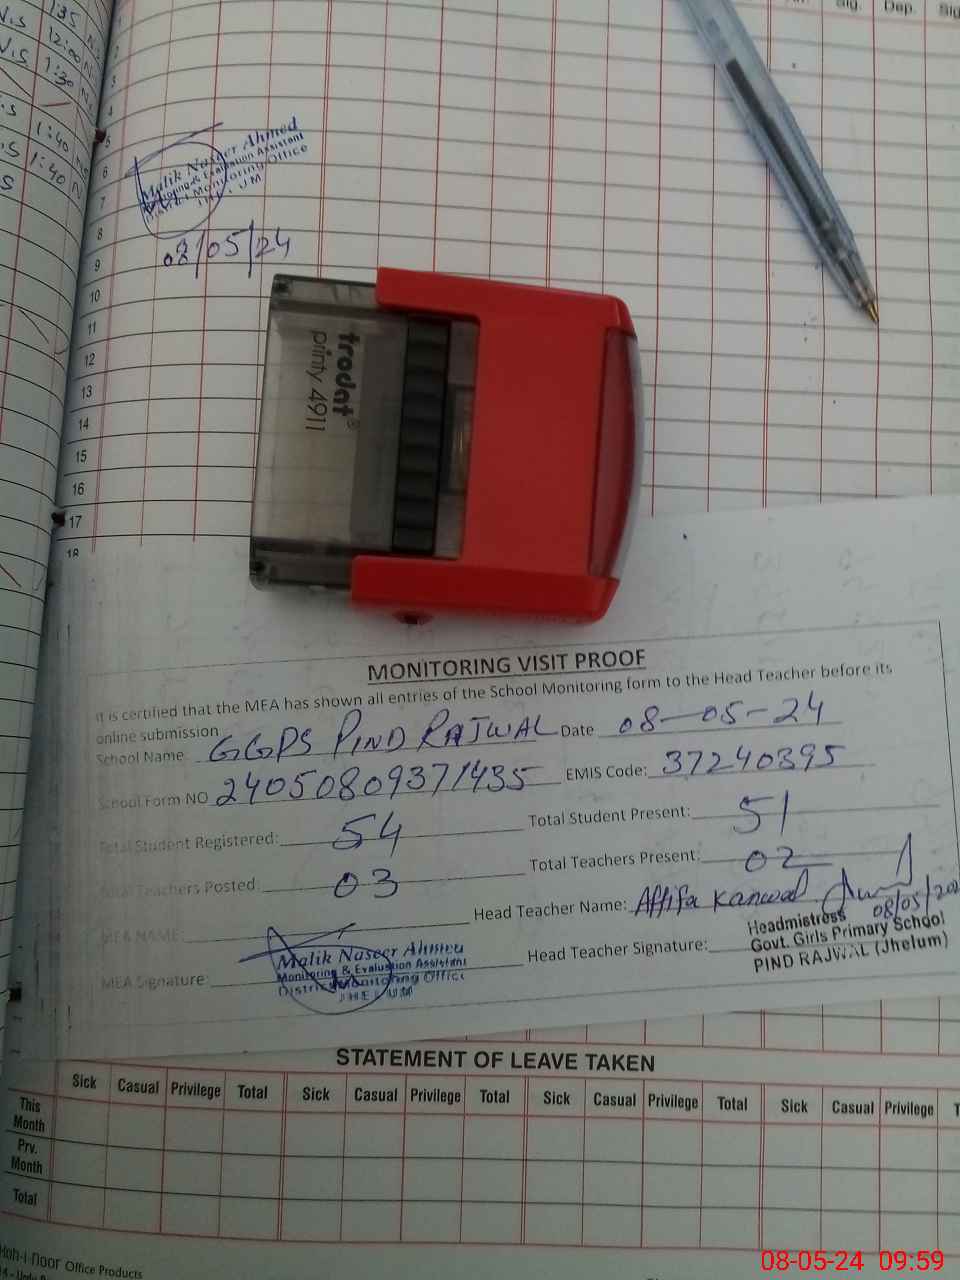 135
V.S 12:00 N
V.S 1:30 N
1:40
1:40 N
Sig. Dep. Sig
2
3
4
5
6
7
8
9
10
11
12
13
14
15
16
17
18
Malik Naseer Ahmed
Monitoring & Evaluation Assistant
District Monitoring Office
JHELUM
02/05/24
trodat®
printy 4911
MONITORING VISIT PROOF
It is certified that the MEA has shown all entries of the School Monitoring form to the Head Teacher before its
online submission
School Name GGPS PIND RAJWAL Date 08-05-24
School Form NO 24050809371435 EMIS Code: 37240395
Total Student Registered: 54 Total Student Present: 51
Total Teachers Posted: 03 Total Teachers Present: 02
MEA NAME: Head Teacher Name: Affifa Kanwal
08/05/202
MEA Signature: Head Teacher Signature:
Malik Naseer Ahmed
Monitoring & Evaluation Assistant
District Monitoring Office
JHELUM
Headmistress
Govt. Girls Primary School
PIND RAJWAL (Jhelum)
STATEMENT OF LEAVE TAKEN
Sick Casual Privilege Total Sick Casual Privilege Total Sick Casual Privilege Total Sick Casual Privilege T
This Month
Prv. Month
Total
Koh-i-noor Office Products
08-05-24 09:59